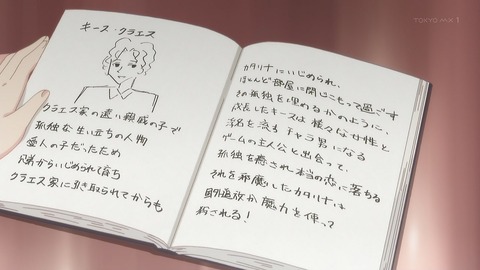 キース・クラエス
クラエス家の遠い親戚の子で
孤独な生い立ちの人物
愛人の子だったため
兄弟からいじめられて育ち
クラエス家に引き取られてからも
カタリナにいじめられ、
ほとんど部屋に閉じこもって過ごす
その孤独を埋めるかのように、
成長したキースは様々な女性と
浮名を流すチャラ男になる
ゲームの主人公と出会って、
孤独を癒され本当の恋に落ちる
それを邪魔したカタリナは
国外追放か魔力を使って
殺される!
TOKYO MX 1